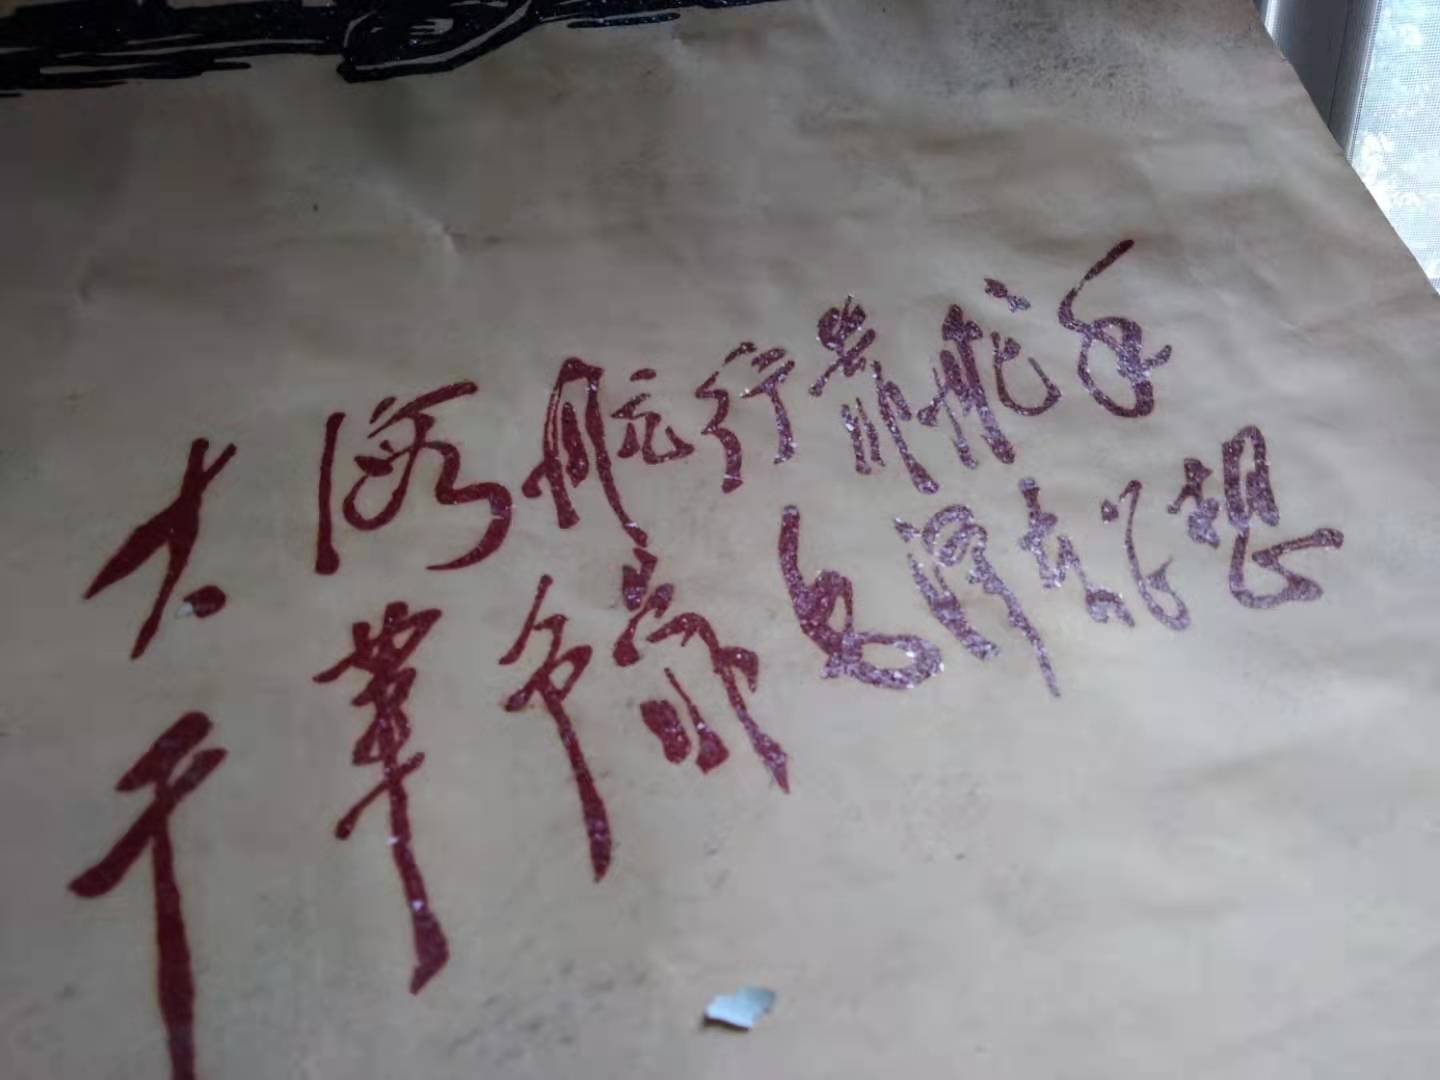 大海航行靠舵手
干革命靠毛泽东思想